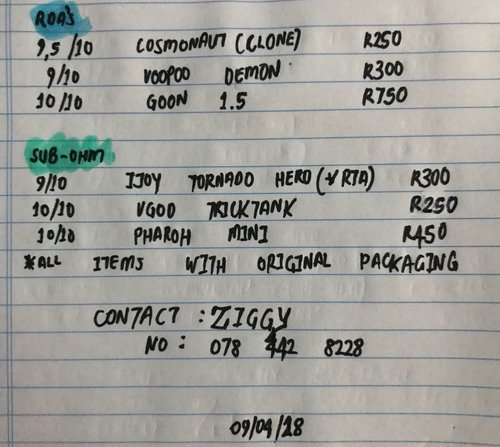 RDA's
9,5/10 COSMONAUT (CLONE) R250
9/10 VOOPOO DEMON R300
10/10 GOON 1.5 R750
SUB-OHM
9/10 IJOY TORNADO HERO (+ RTA) R300
10/10 VGOD TRICKTANK R250
10/10 PHAROH MINI R450
*ALL ITEMS WITH ORIGINAL PACKAGING
CONTACT : ZIGGY
NO : 078 442 8228
09/09/18